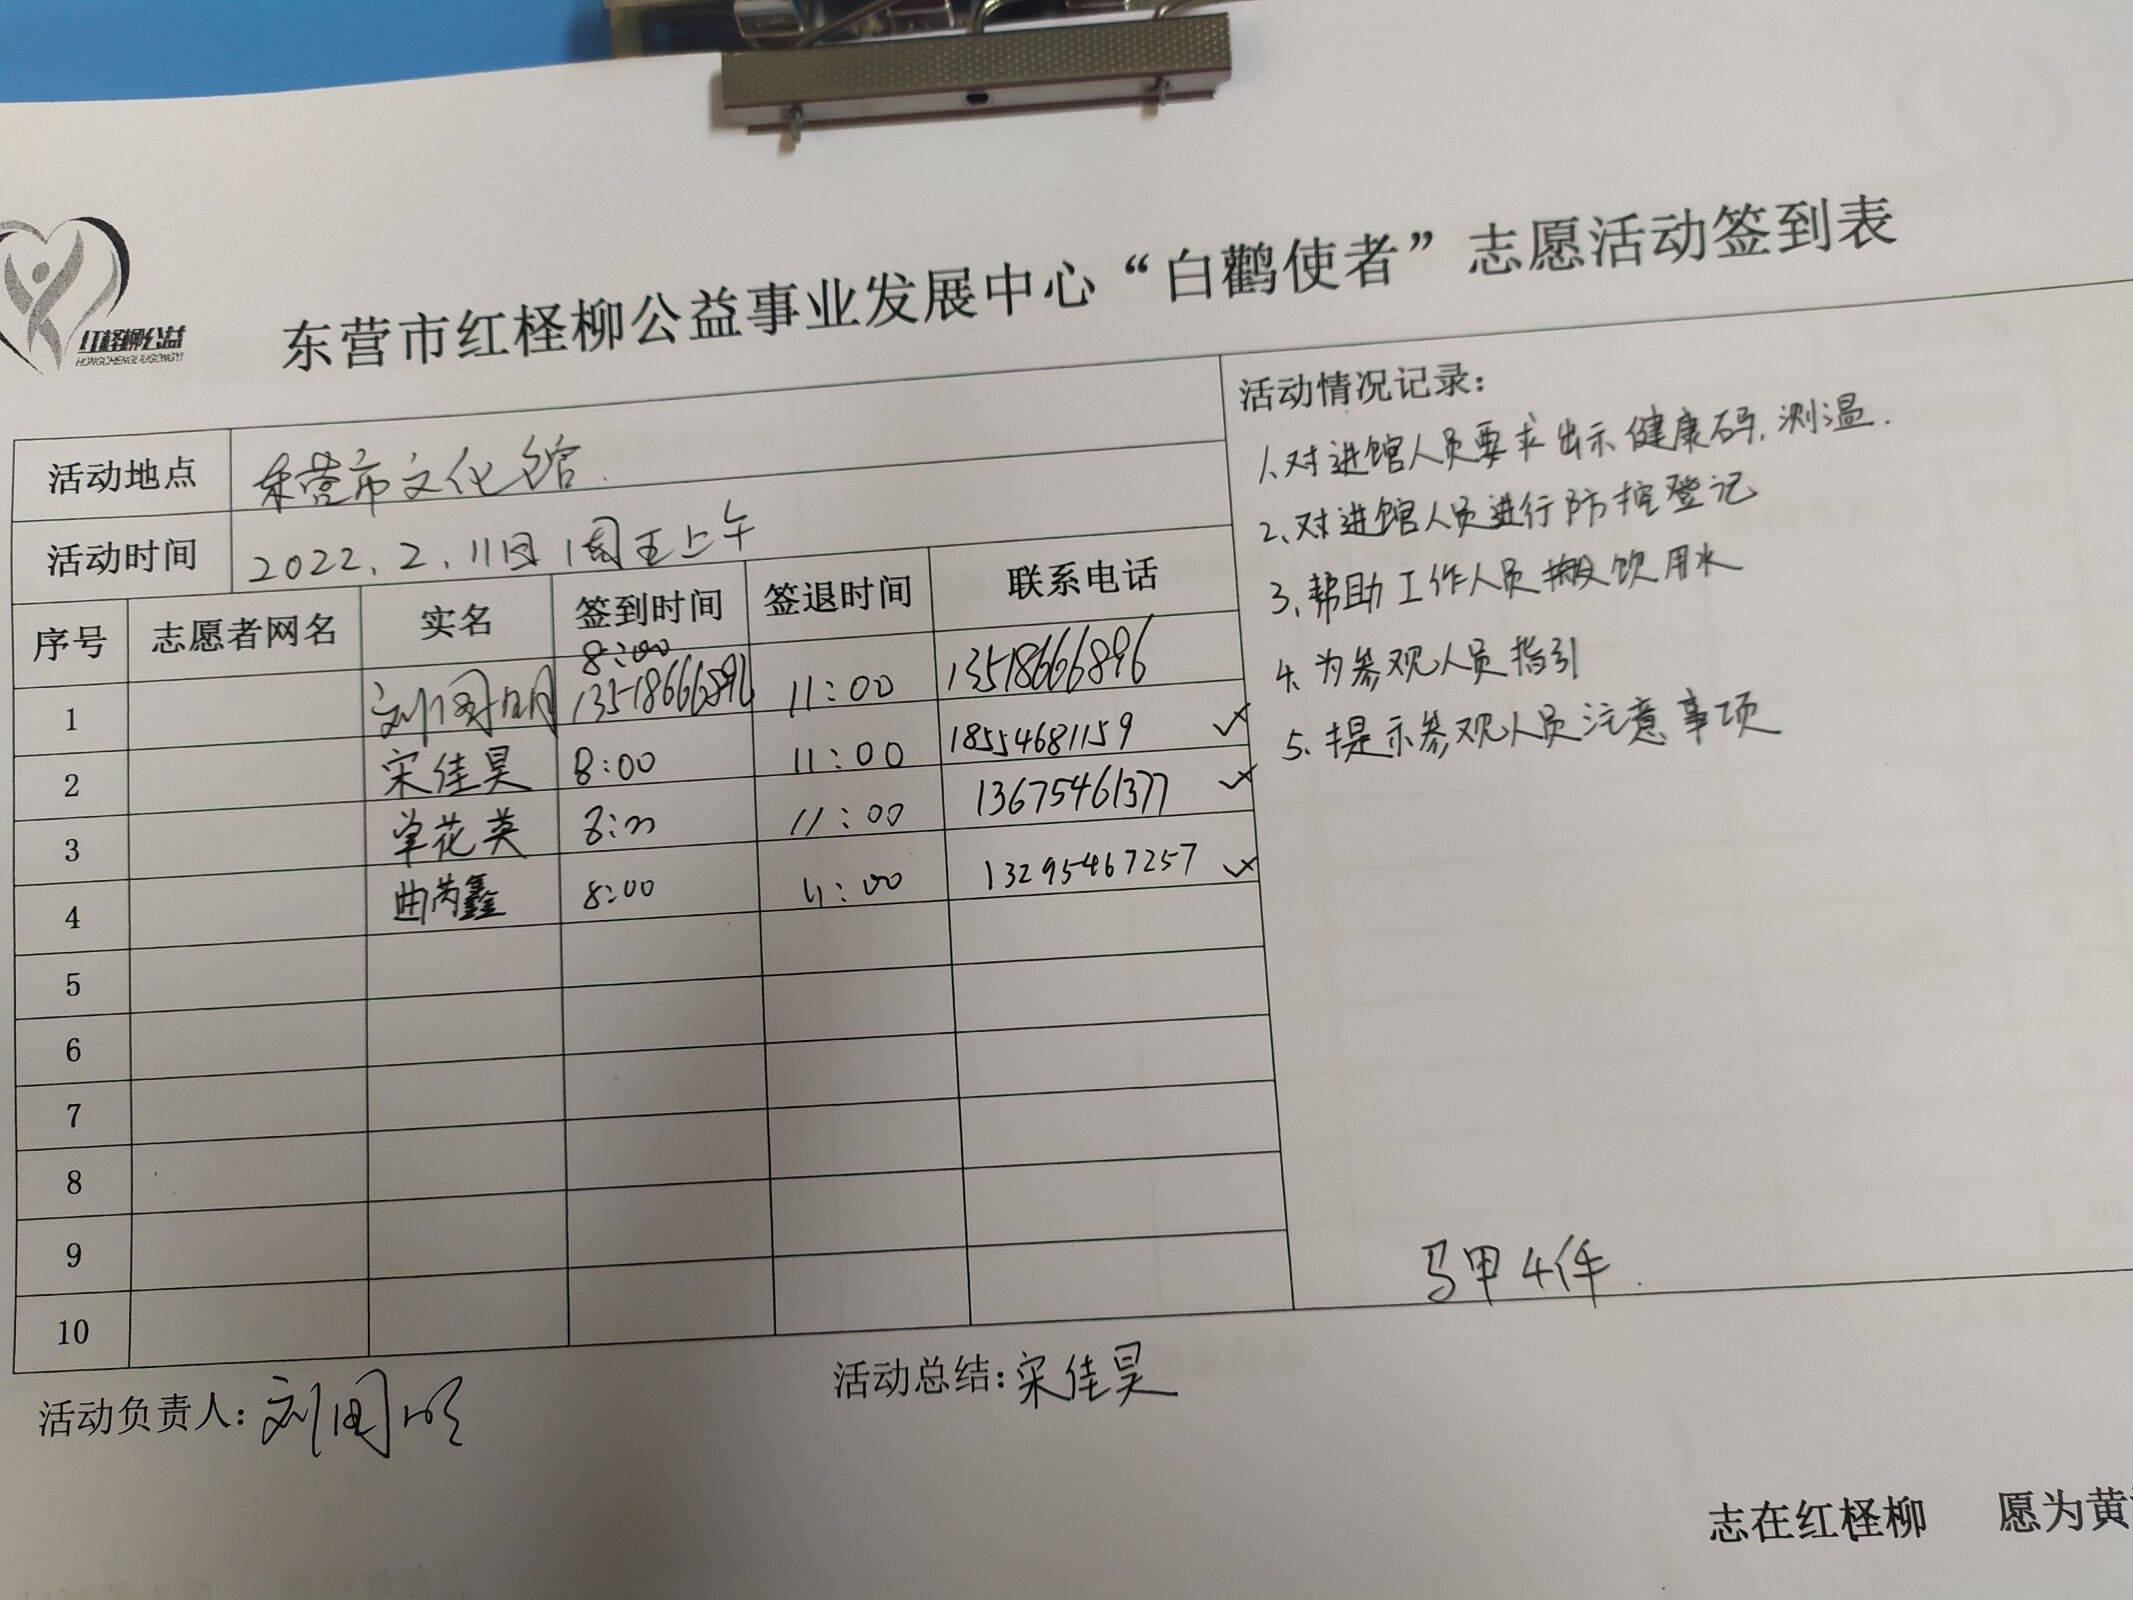 红柽柳公益
HONGCHENGLIUGONGYI
东营市红柽柳公益事业发展中心“白鹳使者”志愿活动签到表
活动地点 东营市文化馆.
活动时间 2022.2.11日 周五上午
序号 志愿者网名 实名 签到时间 签退时间 联系电话
8:00
1 刘国明 13518666896 11:00 13518666896
2 宋佳昊 8:00 11:00 18554681159 ✓
3 单花英 8:00 11:00 13675461377 ✓
4 曲芮鑫 8:00 11:00 13295467257 ✓
5
6
7
8
9
10
活动情况记录：
1、对进馆人员要求出示健康码、测温.
2、对进馆人员进行防控登记
3、帮助工作人员搬饮用水
4、为参观人员指引
5、提示参观人员注意事项
马甲4件.
活动负责人：刘国明
活动总结：宋佳昊
志在红柽柳 愿为黄